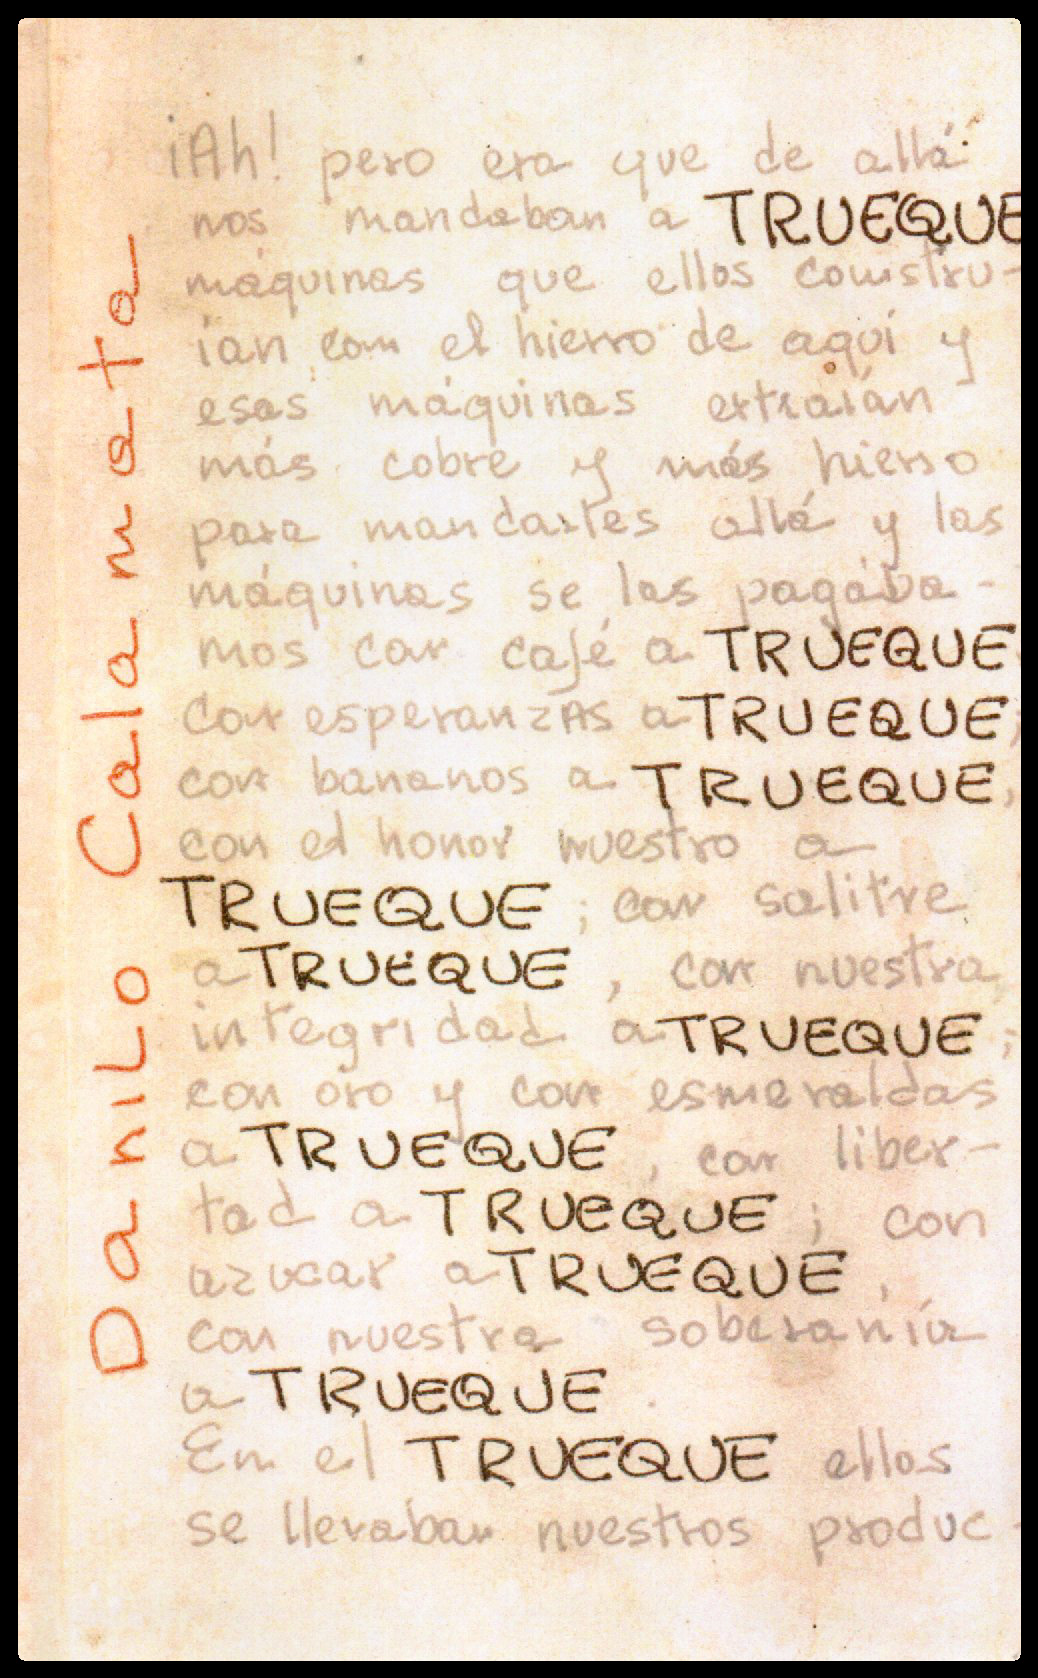 Danilo Calamata
¡Ah! pero era que de allá
nos mandaban a TRUEQUE
máquinas que ellos constru-
ían con el hierro de aquí y
esas máquinas extraían
más cobre y más hierro
para mandarles allá y las
máquinas se las pagába-
mos con café a TRUEQUE
con esperanzAs a TRUEQUE;
con bananos a TRUEQUE,
con el honor nuestro a
TRUEQUE; con salitre
a TRUEQUE, con nuestra
integridad a TRUEQUE;
con oro y con esmeraldas
a TRUEQUE, con liber-
tad a TRUEQUE; con
azucar a TRUEQUE,
con nuestra soberanía
a TRUEQUE.
En el TRUEQUE ellos
se llevaban nuestros produc-